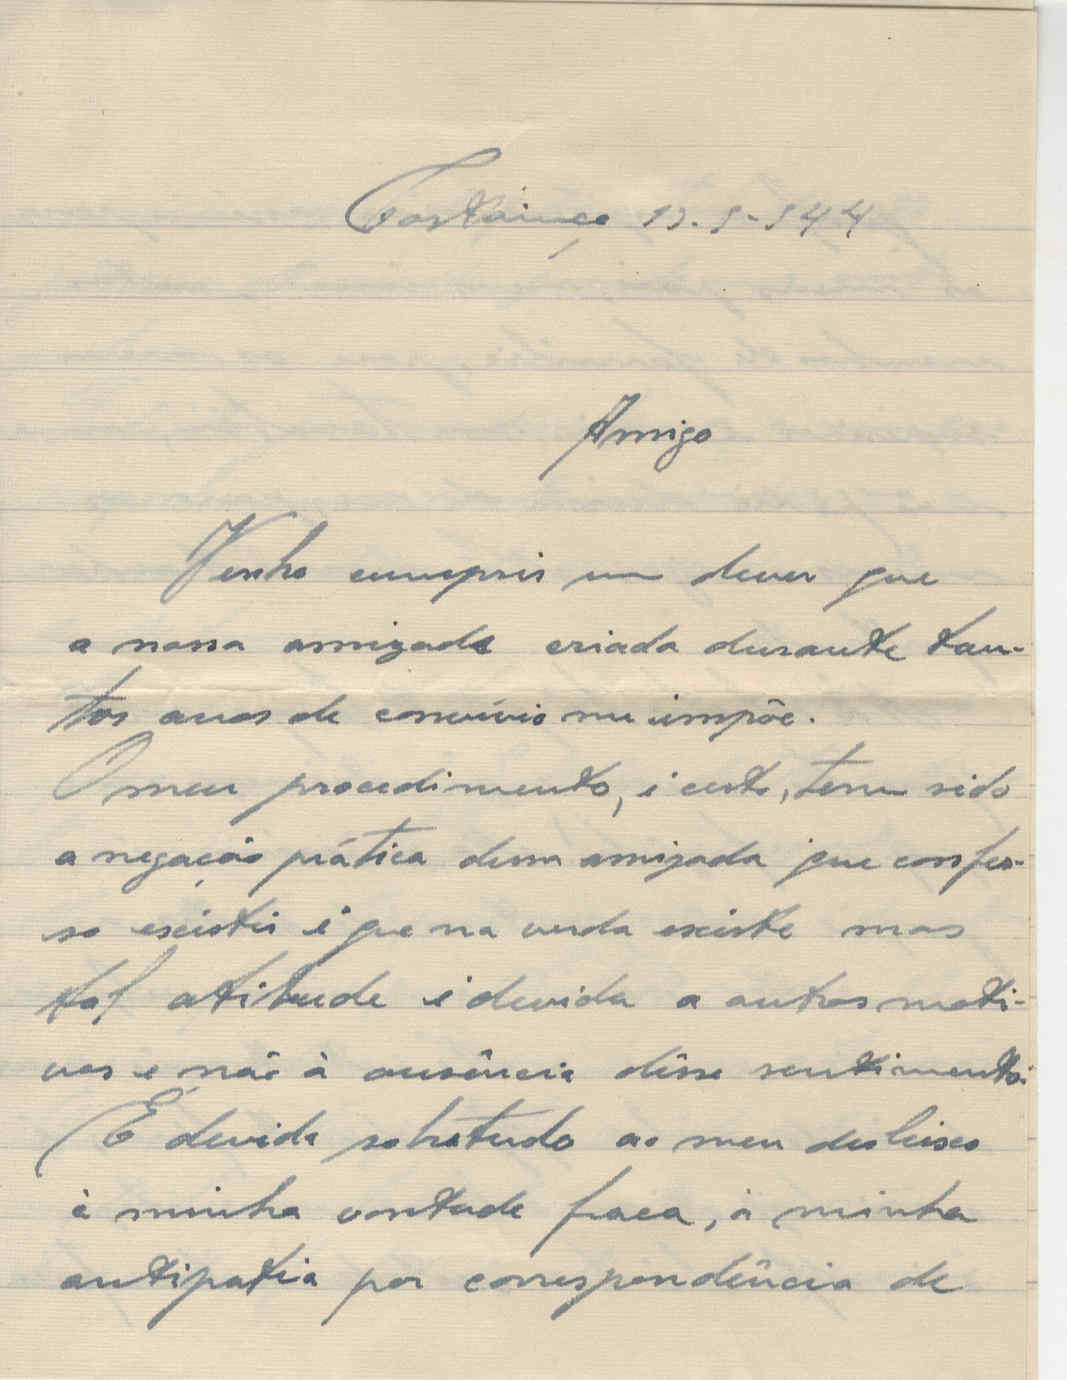 Amigo
Venho cumprir um dever que
a nossa amizade criada durante tan-
tos anos de convívio me impõe.
O meu procedimento, é certo, tem sido
a negação prática dessa amizada que confes-
so existir e que na verda existe mas
tal atitude é devida a outros moti-
vos e não à ausência dêsse sentimento.
É devida sobretudo ao meu desleixo
à minha vontade fraca, à minha
antipatia por correspondência de